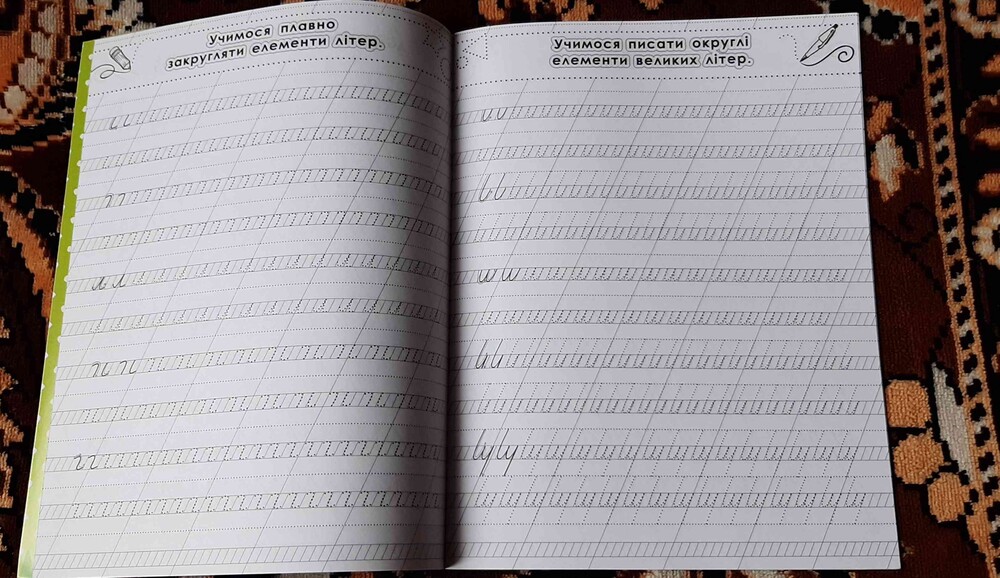 Учимося плавно
закругляти елементи літер.
Учимося писати округлі
елементи великих літер.